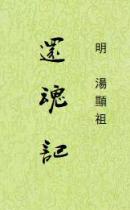 明 湯顯祖
還魂記